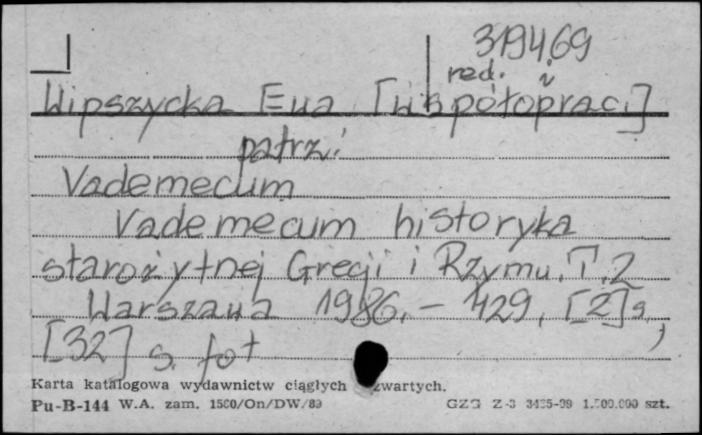 319469
red. i
Wipszycka Ewa [współoprac.]
patrz:
Vademecum
Vademecum historyka
starożytnej Grecji i Rzymu. T. 2
Warszawa 1986. – 429, [2] s,
[32] s. fot
Karta katalogowa wydawnictw ciągłych zwartych.
Pu-B-144 W.A. zam. 1500/On/DW/89 GZG Z-3 3435-89 1.500.000 szt.